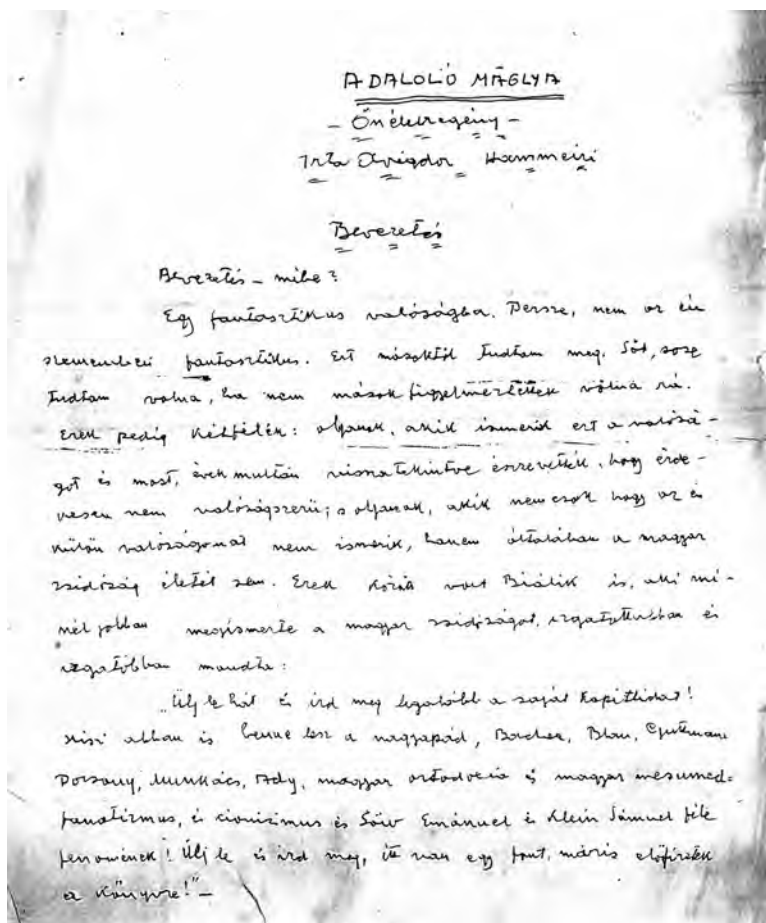 A DALOLÓ MÁGLYA
- Önéletregény -
Irta Avigdor Hammeiri
Bevezetés
Bevezetés - mibe?
Egy fantasztikus valóságba. Persze, nem az én
szememben fantasztikus. Ezt másoktól tudtam meg. Sőt, sose
tudtam volna, ha nem mások figyelmeztettek volna rá.
Ezek pedig kétfélék: olyanok, akik ismerik ezt a valósá-
got és most, évek multán visszatekintve észrevették, hogy érde-
kesen nem valóságszerű; s olyanok, akik nemcsak hogy az én
külön valóságomat nem ismerik, hanem általában a magyar
zsidóság életét sem. Ezek közűl volt Biálik is, aki mi-
nél jobban megismerte a magyar zsidóságot, izgatottabban és
izgatóbban mondta:
„Ülj le hát és ird meg legalább a saját kapitlidat!
Hisz abban is benne lesz a nagyapád, Bacher, Blau, Guttmann
Dorsony, Munkács, Ady, magyar ortodoxia és magyar mesumed-
fanatizmus, és cionizmus és Löw Emánuel és Klein Sámuel féle
fenomének! Ülj le és ird meg, itt van egy font, máris előfizetek
a könyvre!" -